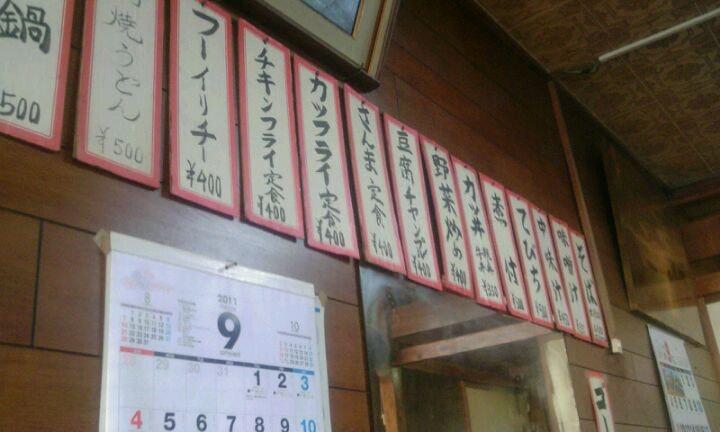 鍋
500
焼うどん
¥500
フーイリチー
¥400
チキンフライ定食
¥400
カツフライ定食
¥400
さんま定食
¥400
豆腐チャンプル
¥400
野菜炒め
¥400
カツ丼
煮付
てびち
中味汁
味噌汁
そば
2011
8
9
10
28
29
30
31
1
2
3
4
5
6
7
8
9
10